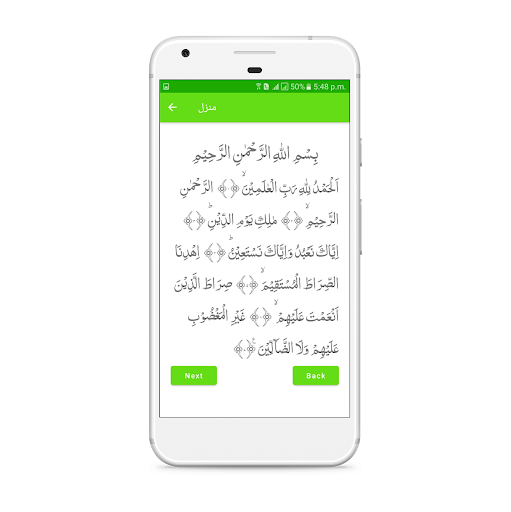 50% 5:48 p.m.
منزل
بِسْمِ اللهِ الرَّحْمٰنِ الرَّحِيْمِ
اَلْحَمْدُ لِلّٰهِ رَبِّ الْعٰلَمِيْنَ ۙ﴿۰﴾ الرَّحْمٰنِ
الرَّحِيْمِ ۙ﴿۰﴾ مٰلِكِ يَوْمِ الدِّيْنِ ؕ﴿۰﴾
اِيَّاكَ نَعْبُدُ وَاِيَّاكَ نَسْتَعِيْنُ ؕ﴿۰﴾ اِهْدِنَا
الصِّرَاطَ الْمُسْتَقِيْمَ ۙ﴿۰﴾ صِرَاطَ الَّذِيْنَ
اَنْعَمْتَ عَلَيْهِمْ ۙ﴿۰﴾ غَيْرِ الْمَغْضُوْبِ
عَلَيْهِمْ وَلَا الضَّآلِّيْنَ ﴿۰﴾
Next Back